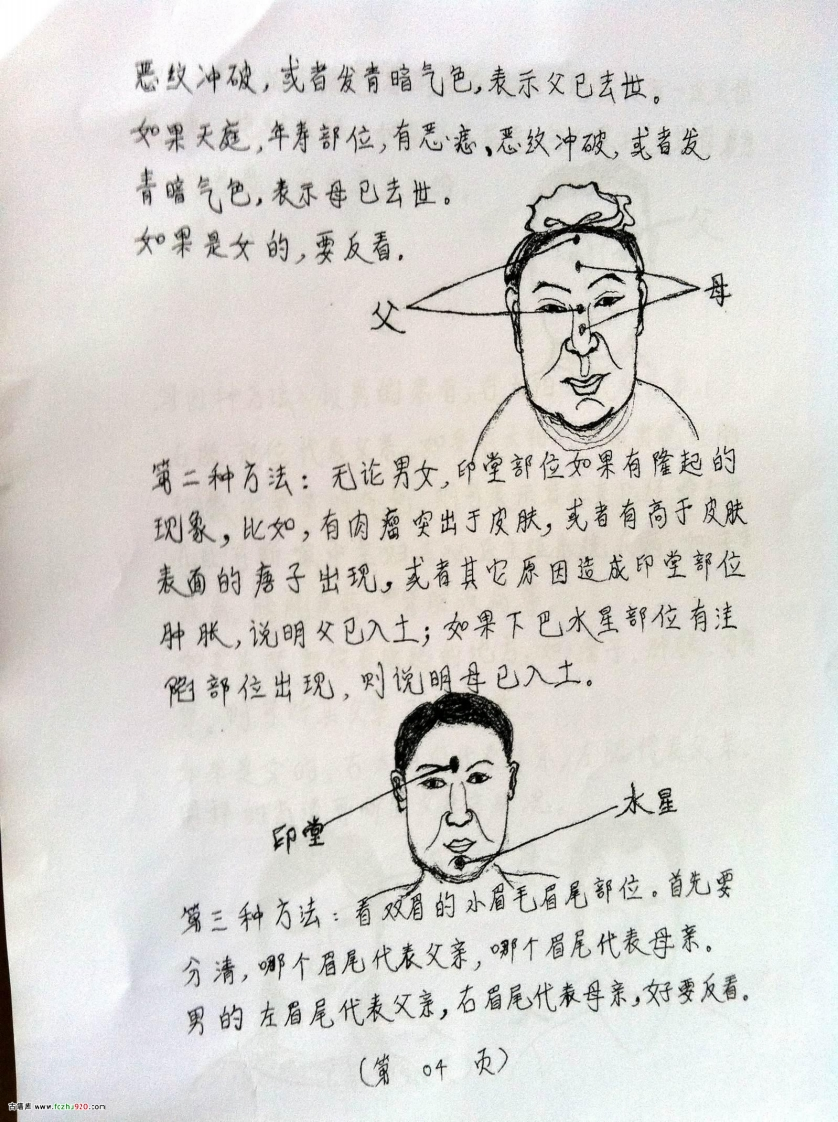 恶纹冲破，或者发青暗气色，表示父已去世。
如果天庭，年寿部位，有恶痣、恶纹冲破，或者发
青暗气色，表示母已去世。
如果是女的，要反看。
父
母
第二种方法：无论男女，印堂部位如果有隆起的
现象，比如，有肉瘤突出于皮肤，或者有高于皮肤
表面的痞子出现，或者其它原因造成印堂部位
肿胀，说明父已入土；如果下巴水星部位有洼
陷部位出现，则说明母已入土。
印堂
水星
第三种方法：看双眉的小眉毛眉尾部位。首先要
分清，哪个眉尾代表父亲，哪个眉尾代表母亲。
男的左眉尾代表父亲，右眉尾代表母亲，好要反看。
（第 04 页）
www.fczhu920.com